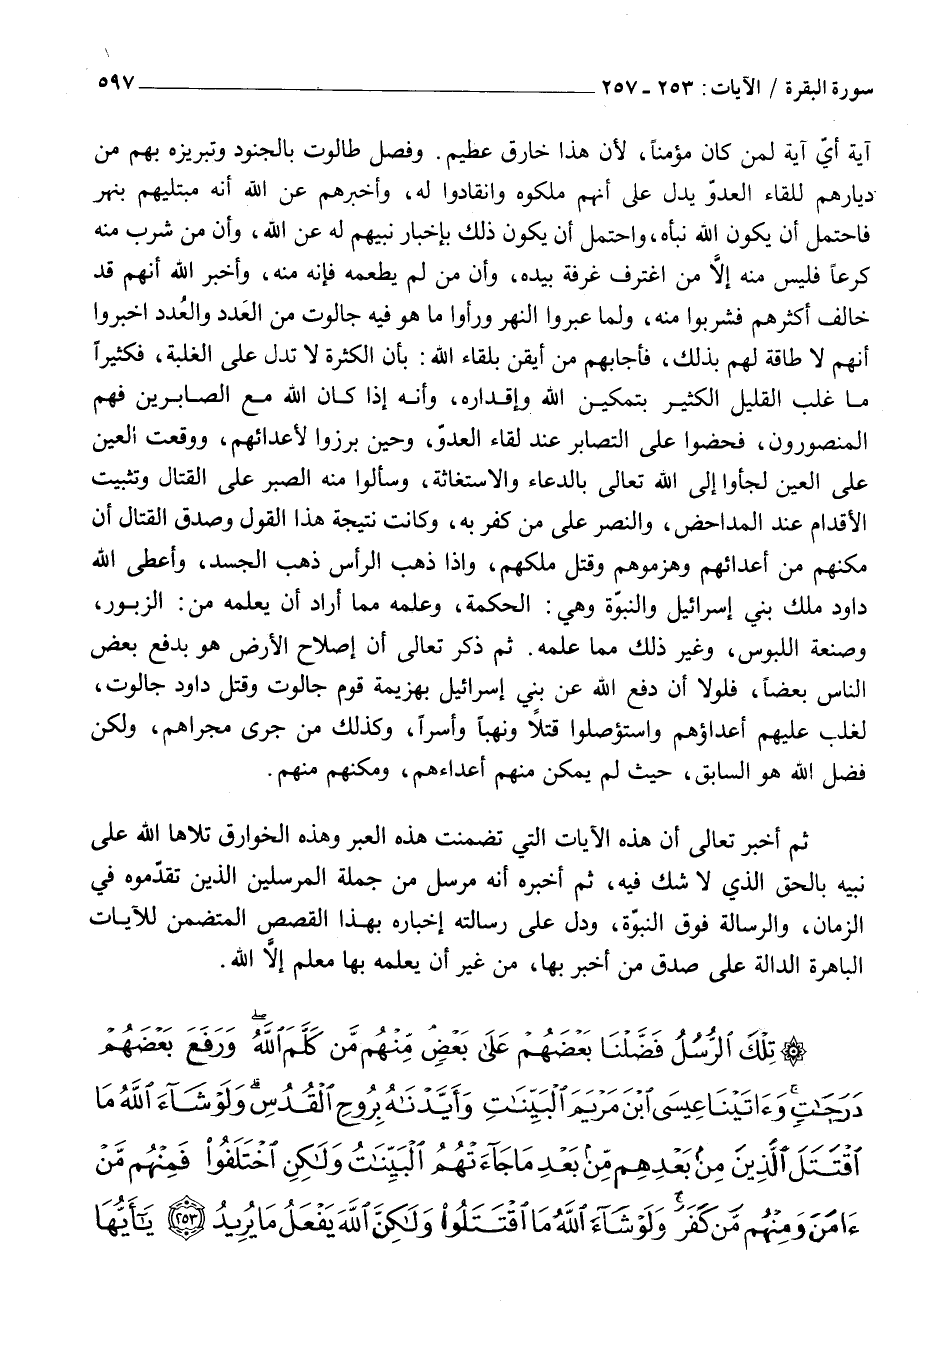 سورة البقرة / الآيات: ٢٥٣ ـ ٢٥٧ ٥٩٧
آية أيّ آية لمن كان مؤمناً، لأن هذا خارق عظيم. وفصل طالوت بالجنود وتبريزه بهم من
ديارهم للقاء العدوّ يدل على أنهم ملكوه وانقادوا له، وأخبرهم عن الله أنه مبتليهم بنهر
فاحتمل أن يكون الله نبأه، واحتمل أن يكون ذلك بإخبار نبيهم له عن الله، وأن من شرب منه
كرعاً فليس منه إلَّا من اغترف غرفة بيده، وأن من لم يطعمه فإنه منه، وأخبر الله أنهم قد
خالف أكثرهم فشربوا منه، ولما عبروا النهر ورأوا ما هو فيه جالوت من العَدد والعُدد اخبروا
أنهم لا طاقة لهم بذلك، فأجابهم من أيقن بلقاء الله: بأن الكثرة لا تدل على الغلبة، فكثيراً
ما غلب القليل الكثير بتمكين الله وإقداره، وأنه إذا كان الله مع الصابرين فهم
المنصورون، فحضوا على التصابر عند لقاء العدوّ، وحين برزوا لأعدائهم، ووقعت العين
على العين لجأوا إلى الله تعالى بالدعاء والاستغاثة، وسألوا منه الصبر على القتال وتثبيت
الأقدام عند المداحض، والنصر على من كفر به، وكانت نتيجة هذا القول وصدق القتال أن
مكنهم من أعدائهم وهزموهم وقتل ملكهم، واذا ذهب الرأس ذهب الجسد، وأعطى الله
داود ملك بني إسرائيل والنبوّة وهي: الحكمة، وعلمه مما أراد أن يعلمه من: الزبور،
وصنعة اللبوس، وغير ذلك مما علمه. ثم ذكر تعالى أن إصلاح الأرض هو بدفع بعض
الناس بعضاً، فلولا أن دفع الله عن بني إسرائيل بهزيمة قوم جالوت وقتل داود جالوت،
لغلب عليهم أعداؤهم واستؤصلوا قتلًا ونهباً وأسراً، وكذلك من جرى مجراهم، ولكن
فضل الله هو السابق، حيث لم يمكن منهم أعداءهم، ومكنهم منهم.
ثم أخبر تعالى أن هذه الآيات التي تضمنت هذه العبر وهذه الخوارق تلاها الله على
نبيه بالحق الذي لا شك فيه، ثم أخبره أنه مرسل من جملة المرسلين الذين تقدّموه في
الزمان، والرسالة فوق النبوّة، ودل على رسالته إخباره بهذا القصص المتضمن للآيات
الباهرة الدالة على صدق من أخبر بها، من غير أن يعلمه بها معلم إلَّا الله.
۞ تِلْكَ ٱلرُّسُلُ فَضَّلْنَا بَعْضَهُمْ عَلَىٰ بَعْضٍ مِّنْهُم مَّن كَلَّمَ ٱللَّهُ ۖ وَرَفَعَ بَعْضَهُمْ
دَرَجَٰتٍ ۚ وَءَاتَيْنَا عِيسَى ٱبْنَ مَرْيَمَ ٱلْبَيِّنَٰتِ وَأَيَّدْنَٰهُ بِرُوحِ ٱلْقُدُسِ ۗ وَلَوْ شَآءَ ٱللَّهُ مَا
ٱقْتَتَلَ ٱلَّذِينَ مِنۢ بَعْدِهِم مِّنۢ بَعْدِ مَا جَآءَتْهُمُ ٱلْبَيِّنَٰتُ وَلَٰكِنِ ٱخْتَلَفُوا۟ فَمِنْهُم مَّنْ
ءَامَنَ وَمِنْهُم مَّن كَفَرَ ۚ وَلَوْ شَآءَ ٱللَّهُ مَا ٱقْتَتَلُوا۟ وَلَٰكِنَّ ٱللَّهَ يَفْعَلُ مَا يُرِيدُ ٢٥٣ يَٰٓأَيُّهَا